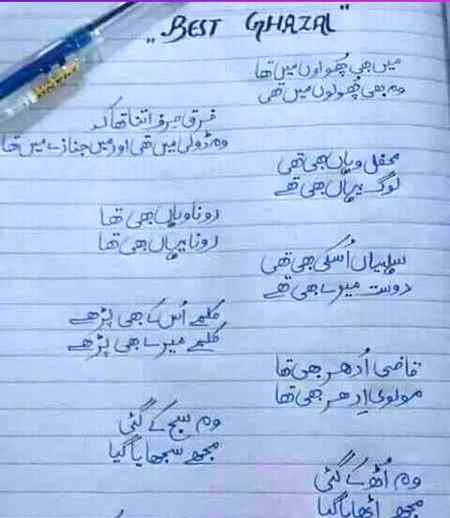 "BEST GHAZAL"
میں بھی پھولوں میں تھا
وہ بھی پھولوں میں تھی
فرق صرف اتنا تھا کہ
وہ ڈولی میں تھی اور میں جنازے میں تھا
محفل وہاں بھی تھی
لوگ یہاں بھی تھے
رونا وہاں بھی تھا
رونا یہاں بھی تھا
سہلیاں اُسکی بھی تھی
دوست میرے بھی تھے
کلمے اُس کے بھی پڑھے
کلمے میرے بھی پڑھے
قاضی اُدھر بھی تھا
مولوی اِدھر بھی تھا
وہ سج کے گئی
مجھے سجھایا گیا
وہ اُٹھ کے گئی
مجھے اٹھایا گیا